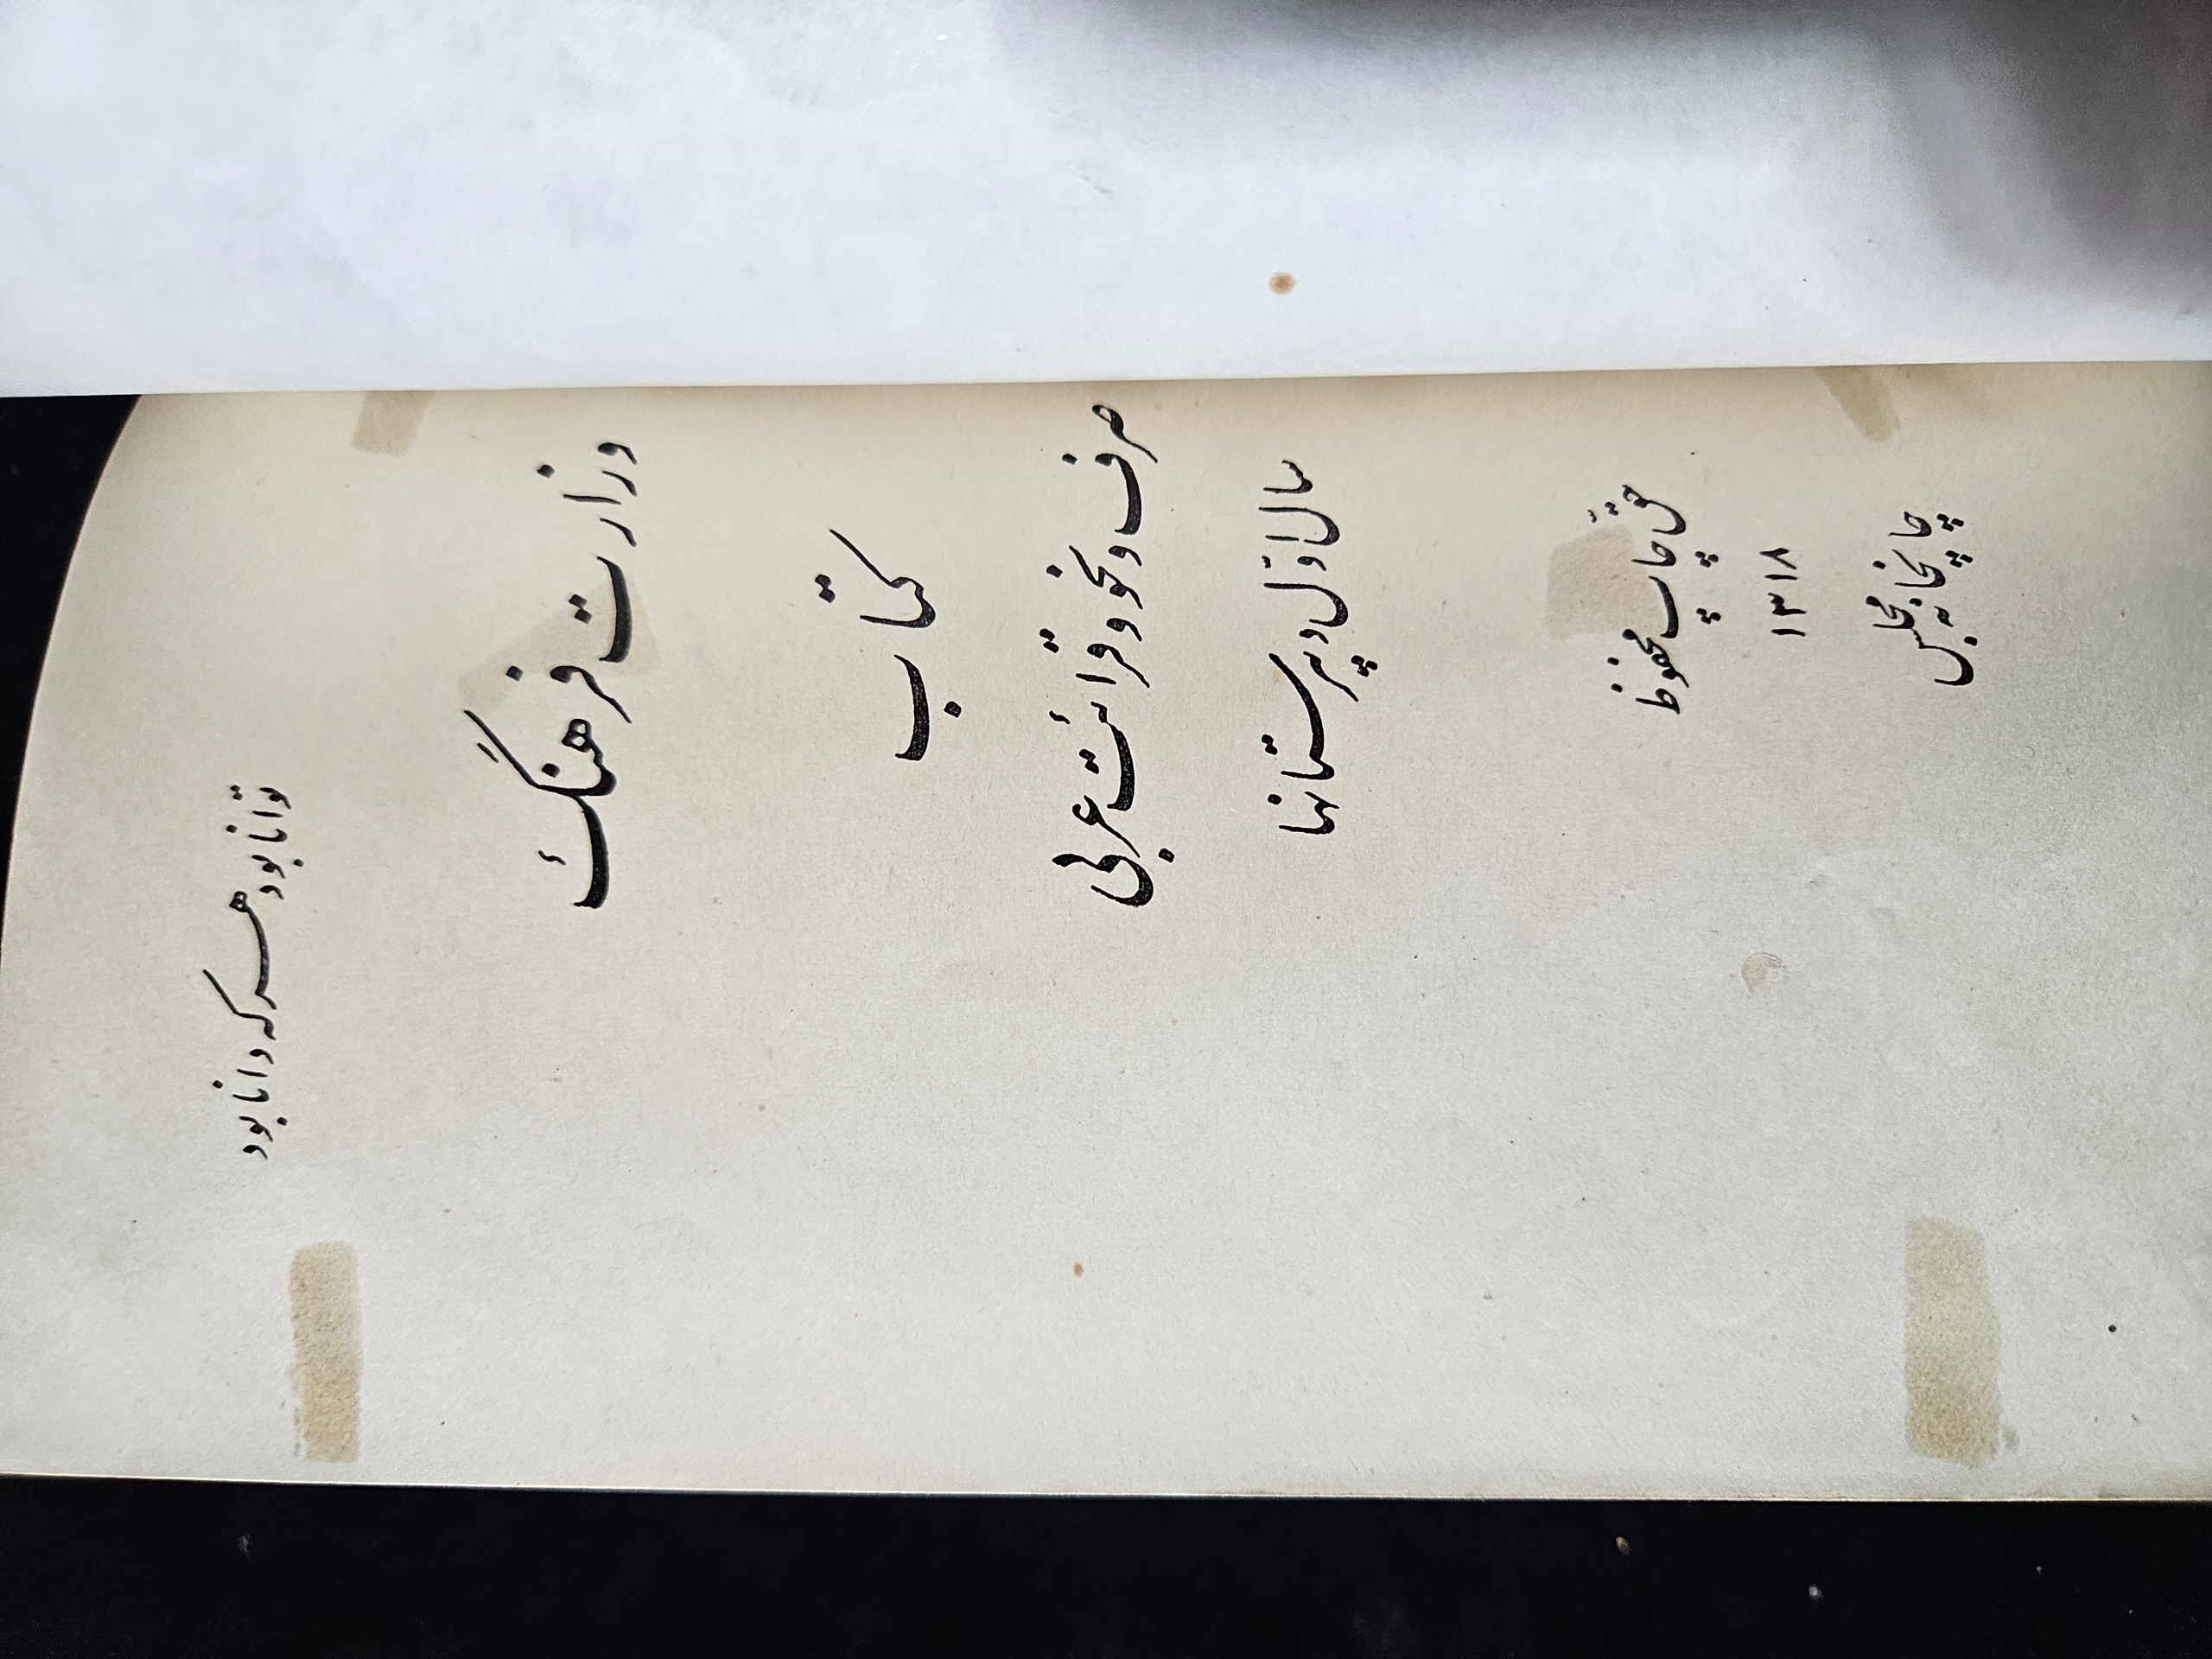 توانا بود هر که دانا بود
وزارت فرهنگ
کتاب
صرف و نحو و قرائت عربی
سال اوّل دبیرستانها
حق چاپ محفوظ
۱۳۱۸
چاپخانه مجلس